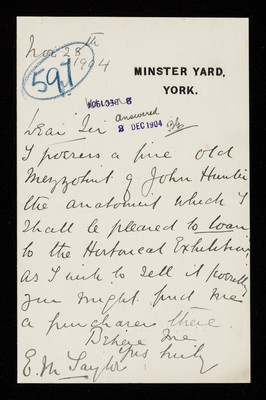 Nov 28th
1904
597
MINSTER YARD,
YORK.
Answered
2 DEC 1904
Dear Sir
I possess a fine old
Mezzotint of John Hunter
the anatomist which I
shall be pleased to loan
to the Historical Exhibition,
as I wish to sell it possibly
you might find me
a purchaser there.
Believe me
yrs truly
E. M. Taylor